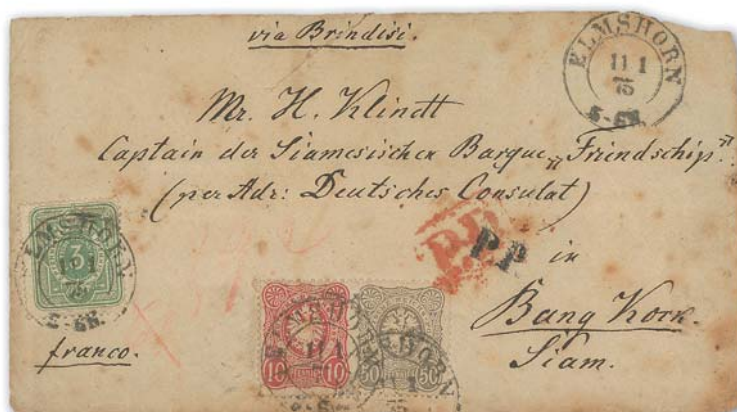 via Brindisi.
ELMSHORN
11 1
75
5-6N.
Mr. H. Klindt
Captain der Siamesischen Barque "Friendschip".
(per Adr: Deutsches Consulat)
P.D.
P.P.
in
Bang Kock.
Siam.
3
ELMSHORN
11 1
75
5-6N.
franco.
10 PFENNIG 10
50 PFENNIG 50
ELMSHORN
11 1
HORN
1